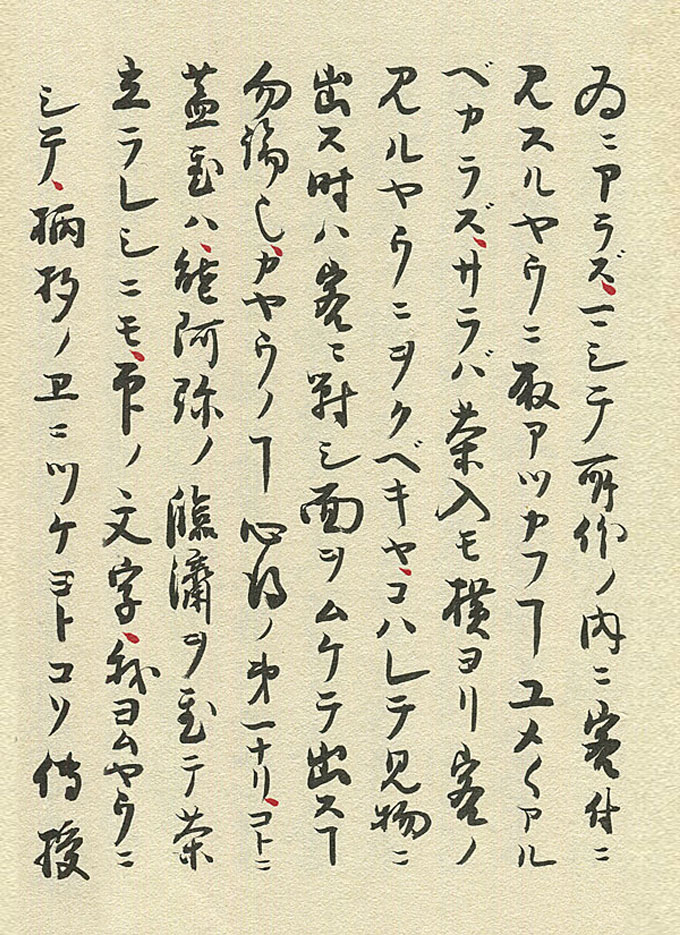 為ニアラズ、一ニシテ所作ノ内ニ客付ニ
見スルヤウニ取アツカフヿユメ〱アル
ベカラズ、サラバ茶入モ横ヨリ客ノ
見ルヤウニヲクベキヤ、コハレテ見物ニ
出ス時ハ客ニ對シ面ヲムケテ出スヿ
勿論也、カヤウノヿ心得ノ第一ナリ、コトニ
蓋置ハ、能阿弥ノ臨濟ヲ置テ茶
立ラレシニモ、印ノ文字、我ヨムヤウニ
シテ、柄杓ノヱニツケヨトコソ傳授